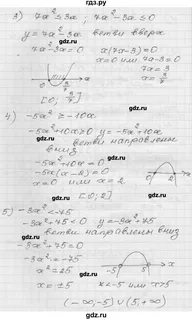 3) 7x² ≤ 3x ; 7x² - 3x ≤ 0
y = 7x² - 3x ветви вверх
7x² - 3x = 0 x(7x - 3) = 0
x = 0 или 7x - 3 = 0
7x = 3
x = 3/7
0 3/7 x
[0; 3/7]
4) -5x² ≥ -10x
-5x² + 10x ≥ 0 y = -5x² + 10x
ветви направлены
вниз
-5x² + 10x = 0
-5x(x - 2) = 0
x = 0 или x = 2
0 2 x
[0; 2]
5) -3x² < -75
-3x² + 75 < 0 y = -3x² + 75
ветви направлены вниз
-3x² + 75 = 0
-3x² = -75
x² = 25
x = ±5
-5 5 x
x < -5 или x > 5
(-∞; -5) ∪ (5; +∞)
gdz.ru